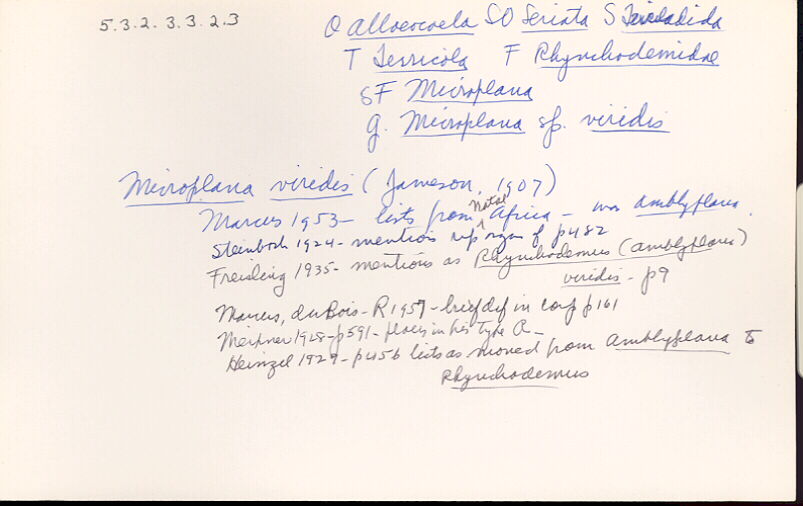 5.3.2.3.3.2.3
O Alloeocoela SO Seriata S Tricladida
T Terricola F Rhynchodemidae
SF Microplana
g. Microplana sp. viridis
Microplana viridis (Jameson, 1907)
Marcus 1953 - lists from Natal Africa - was Amblyplana
Steinboch 1924 - mentions rep organ of p482
Freisling 1935 - mentions as Rhynchodemus (Amblyplana)
viridis - p9
Marcus, duBois-R 1957 - brief def in comp p161
Meixner 1928 - p591 - places in his type A -
Heinzel 1929 - p456 lists as moved from Amblyplana to
Rhynchodemus